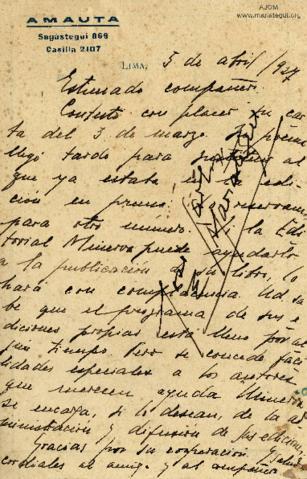 AJCM
www.mariategui.org
AMAUTA
Sagástegui 669
Casilla 2107
LIMA, 5 de abril/927
Estimado compañero:
Contesto con placer su car
ta del 3 de marzo. Su poema
llegó tarde para
que ya estaba
ción en prensa. reservamos
para otro número. la Edi
torial Minerva puede ayudarlo
a la publicación su libro, lo
hará con complacencia. Ud sa
be que el programa de sus e
diciones propias está lleno por al
gún tiempo. Pero se concede faci
lidades especiales a los autores
que merecen ayuda. Minerva
se encarga, si lo desean, de la ad
ministración y difusión de sus ediciones.
Gracias por su cooperación. Y saludos
cordiales al amigo y al compañero